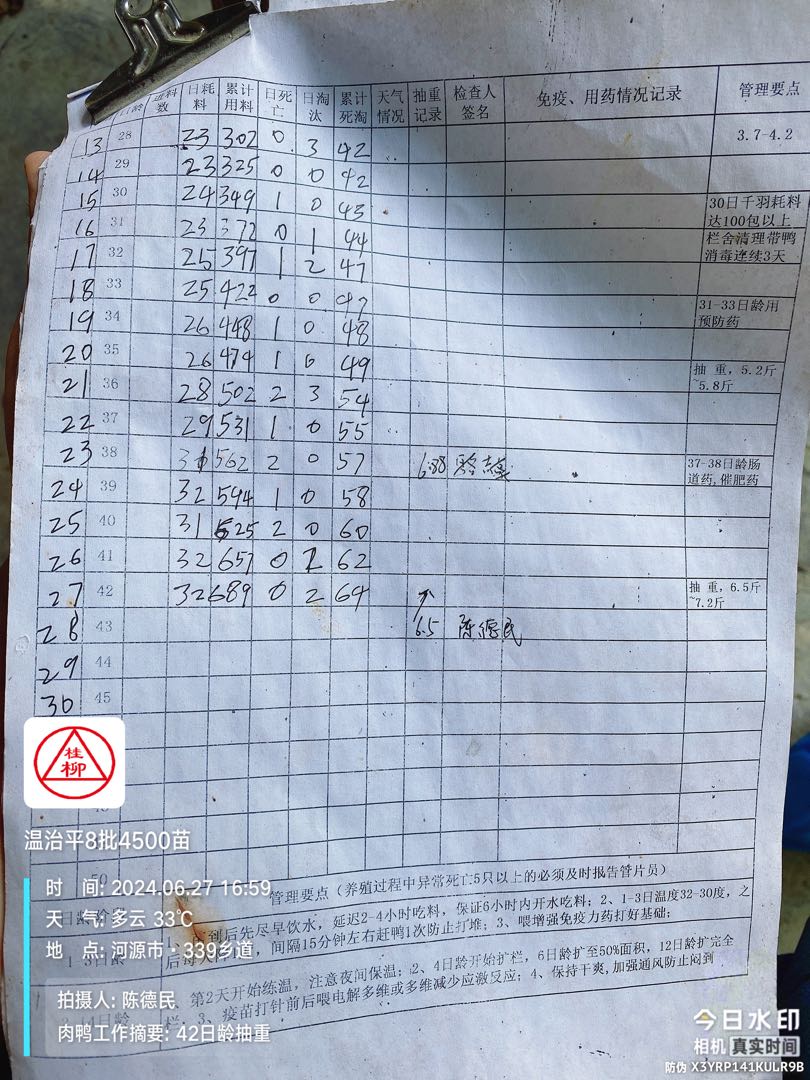 日龄 进料数 日耗料 累计用料 日死亡 日淘汰 累计死淘 天气情况 抽重记录 检查人签名 免疫、用药情况记录 管理要点
13 28 23 302 0 3 42 3.7-4.2
14 29 23 325 0 0 42
15 30 24 349 1 0 43 30日千羽耗料达100包以上
16 31 23 372 0 1 44 栏舍清理带鸭消毒连续3天
17 32 25 397 1 2 47
18 33 25 422 0 0 47 31-33日龄用预防药
19 34 26 448 1 0 48
20 35 26 474 1 0 49 抽重,5.2斤~5.8斤
21 36 28 502 2 3 54
22 37 29 531 1 0 55
23 38 31 562 2 0 57 6.88 37-38日龄肠道药,催肥药
24 39 32 594 1 0 58
25 40 31 625 2 0 60
26 41 32 657 0 2 62
27 42 32 689 0 2 64 抽重,6.5斤~7.2斤
28 43 6.5 陈德民
29 44
30 45
50
管理要点(养殖过程中异常死亡5只以上的必须及时报告管片员)
日龄阶段
到后先尽早饮水,延迟2-4小时吃料,保证6小时内开水吃料;2、1-3日温度32-30度,之
后每 ,间隔15分钟左右赶鸭1次防止打堆;3、喂增强免疫力药打好基础;
第2天开始练温,注意夜间保温;2、4日龄开始扩栏,6日龄扩至50%面积,12日龄扩完全
栏、3、疫苗打针前后喂电解多维或多维减少应激反应;4、保持干爽,加强通风防止闷到
桂柳
温治平8批4500苗
时 间: 2024.06.27 16:59
天 气: 多云 33℃
地 点: 河源市·339乡道
拍摄人: 陈德民
肉鸭工作摘要: 42日龄抽重
今日水印
相机 真实时间
防伪 X3YRP141KULR9B